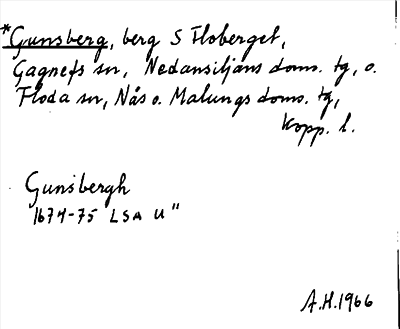 *Gunsberg, berg S Floberget,
Gagnefs sn, Nedansiljans doms. tg, o.
Floda sn, Nås o. Malungs doms. tg,
Kopp. l.
Gunsbergh
1674-75 LSA U"
A.H. 1966